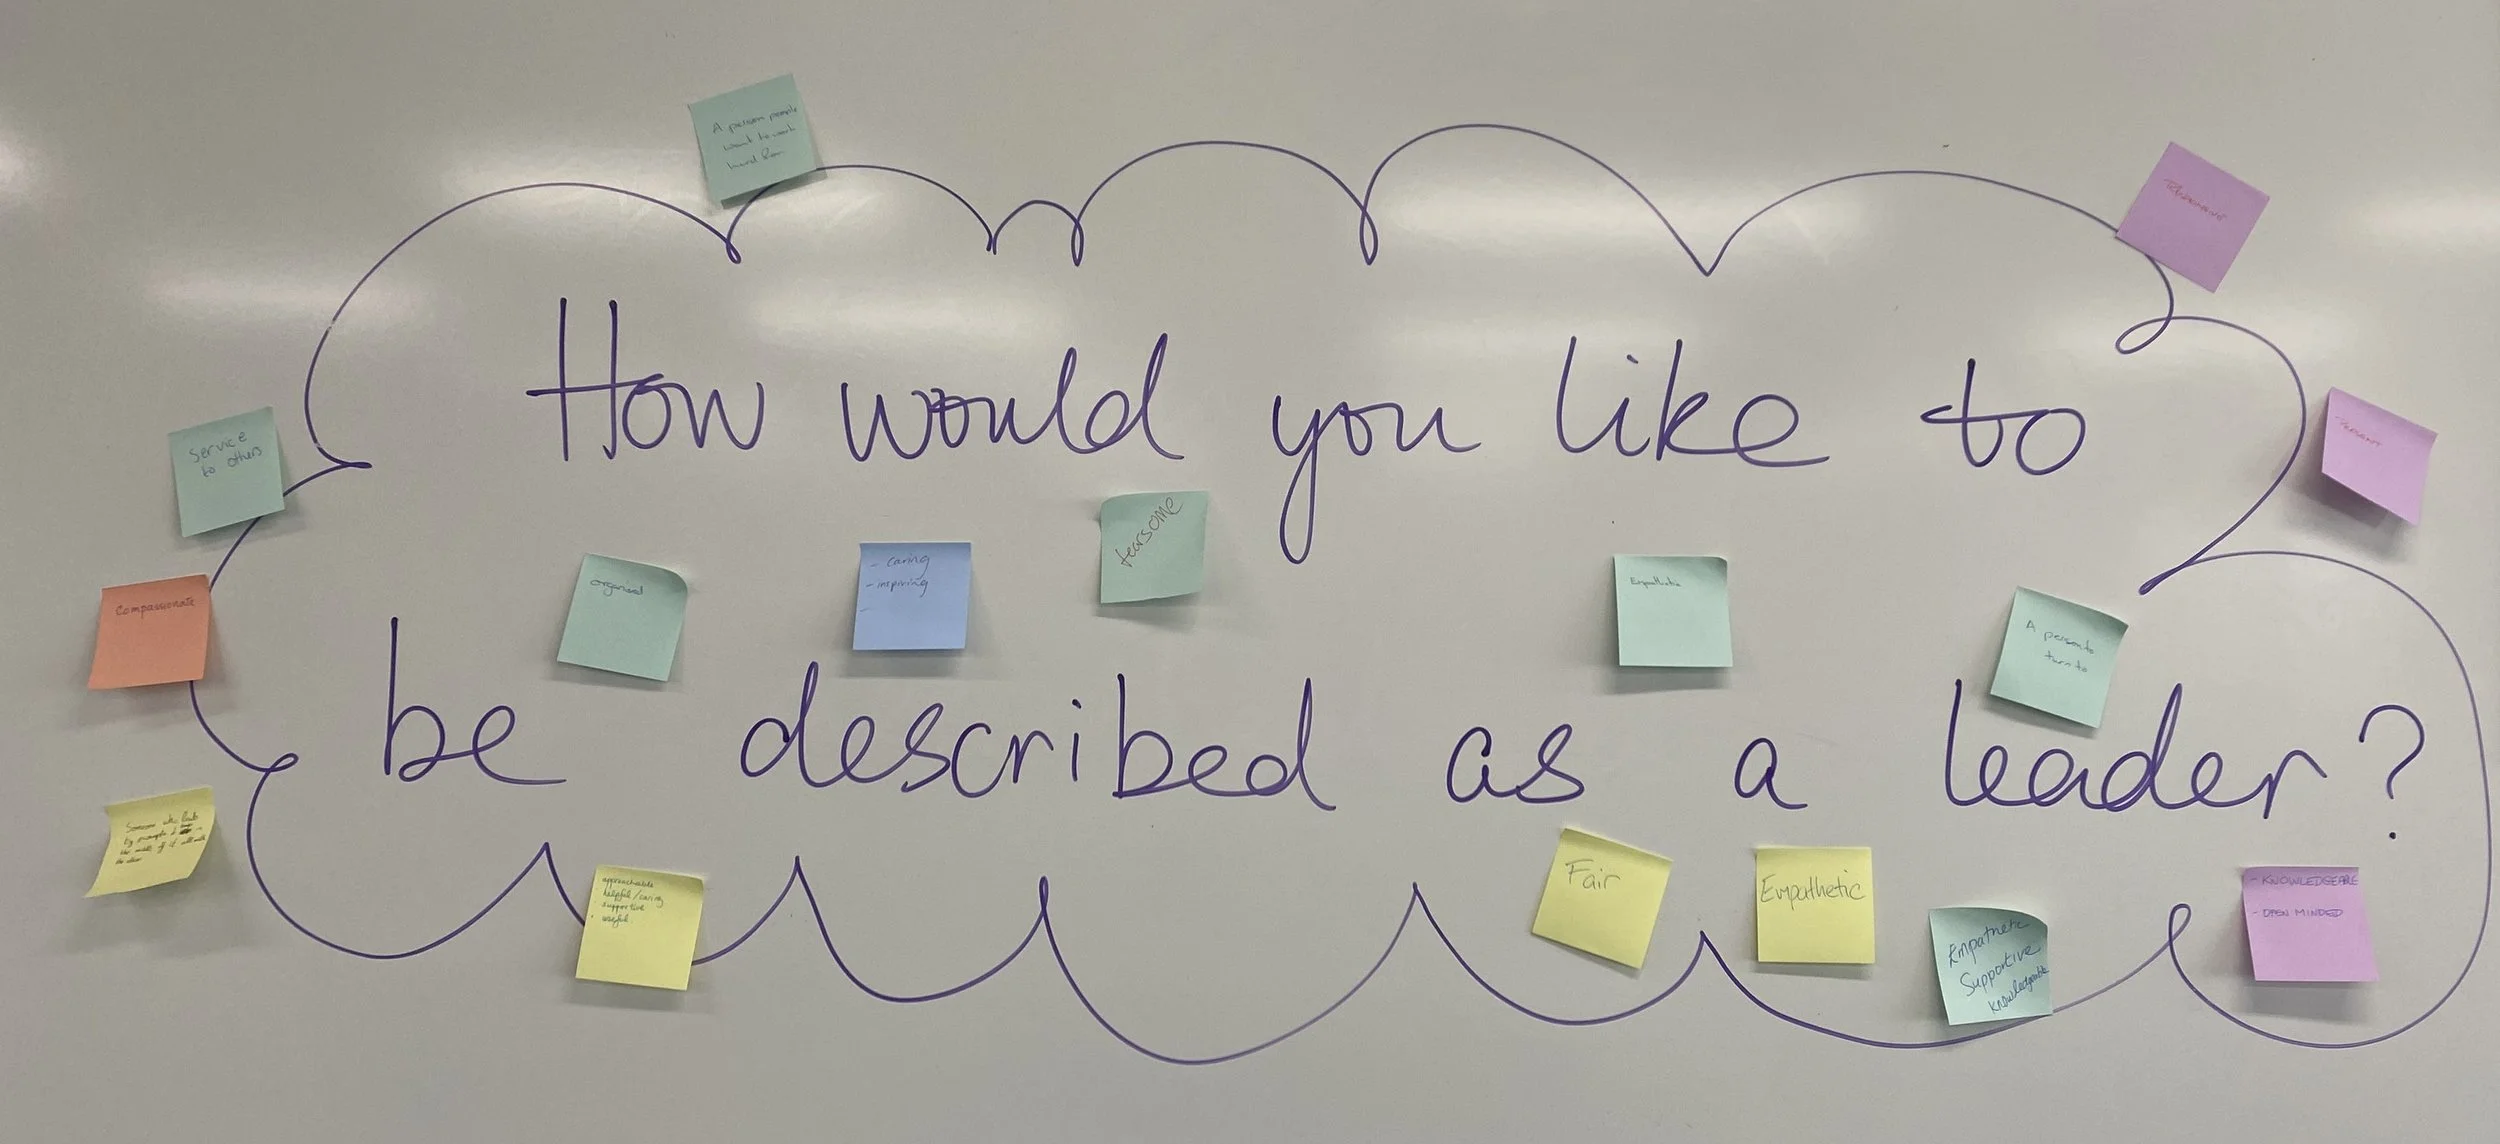 A person people
want to work
hard for
How would you like to
Service
to others
organised
- caring
- inspiring
-
fearsome
Empathetic
A person to
turn to
Compassionate
be described as a leader?
Someone who leads
by
the
the other
approachable
helpful/caring
supportive
useful
Fair
Empathetic
Empathetic
Supportive
Knowledgeable
- KNOWLEDGEABLE
- OPEN MINDED